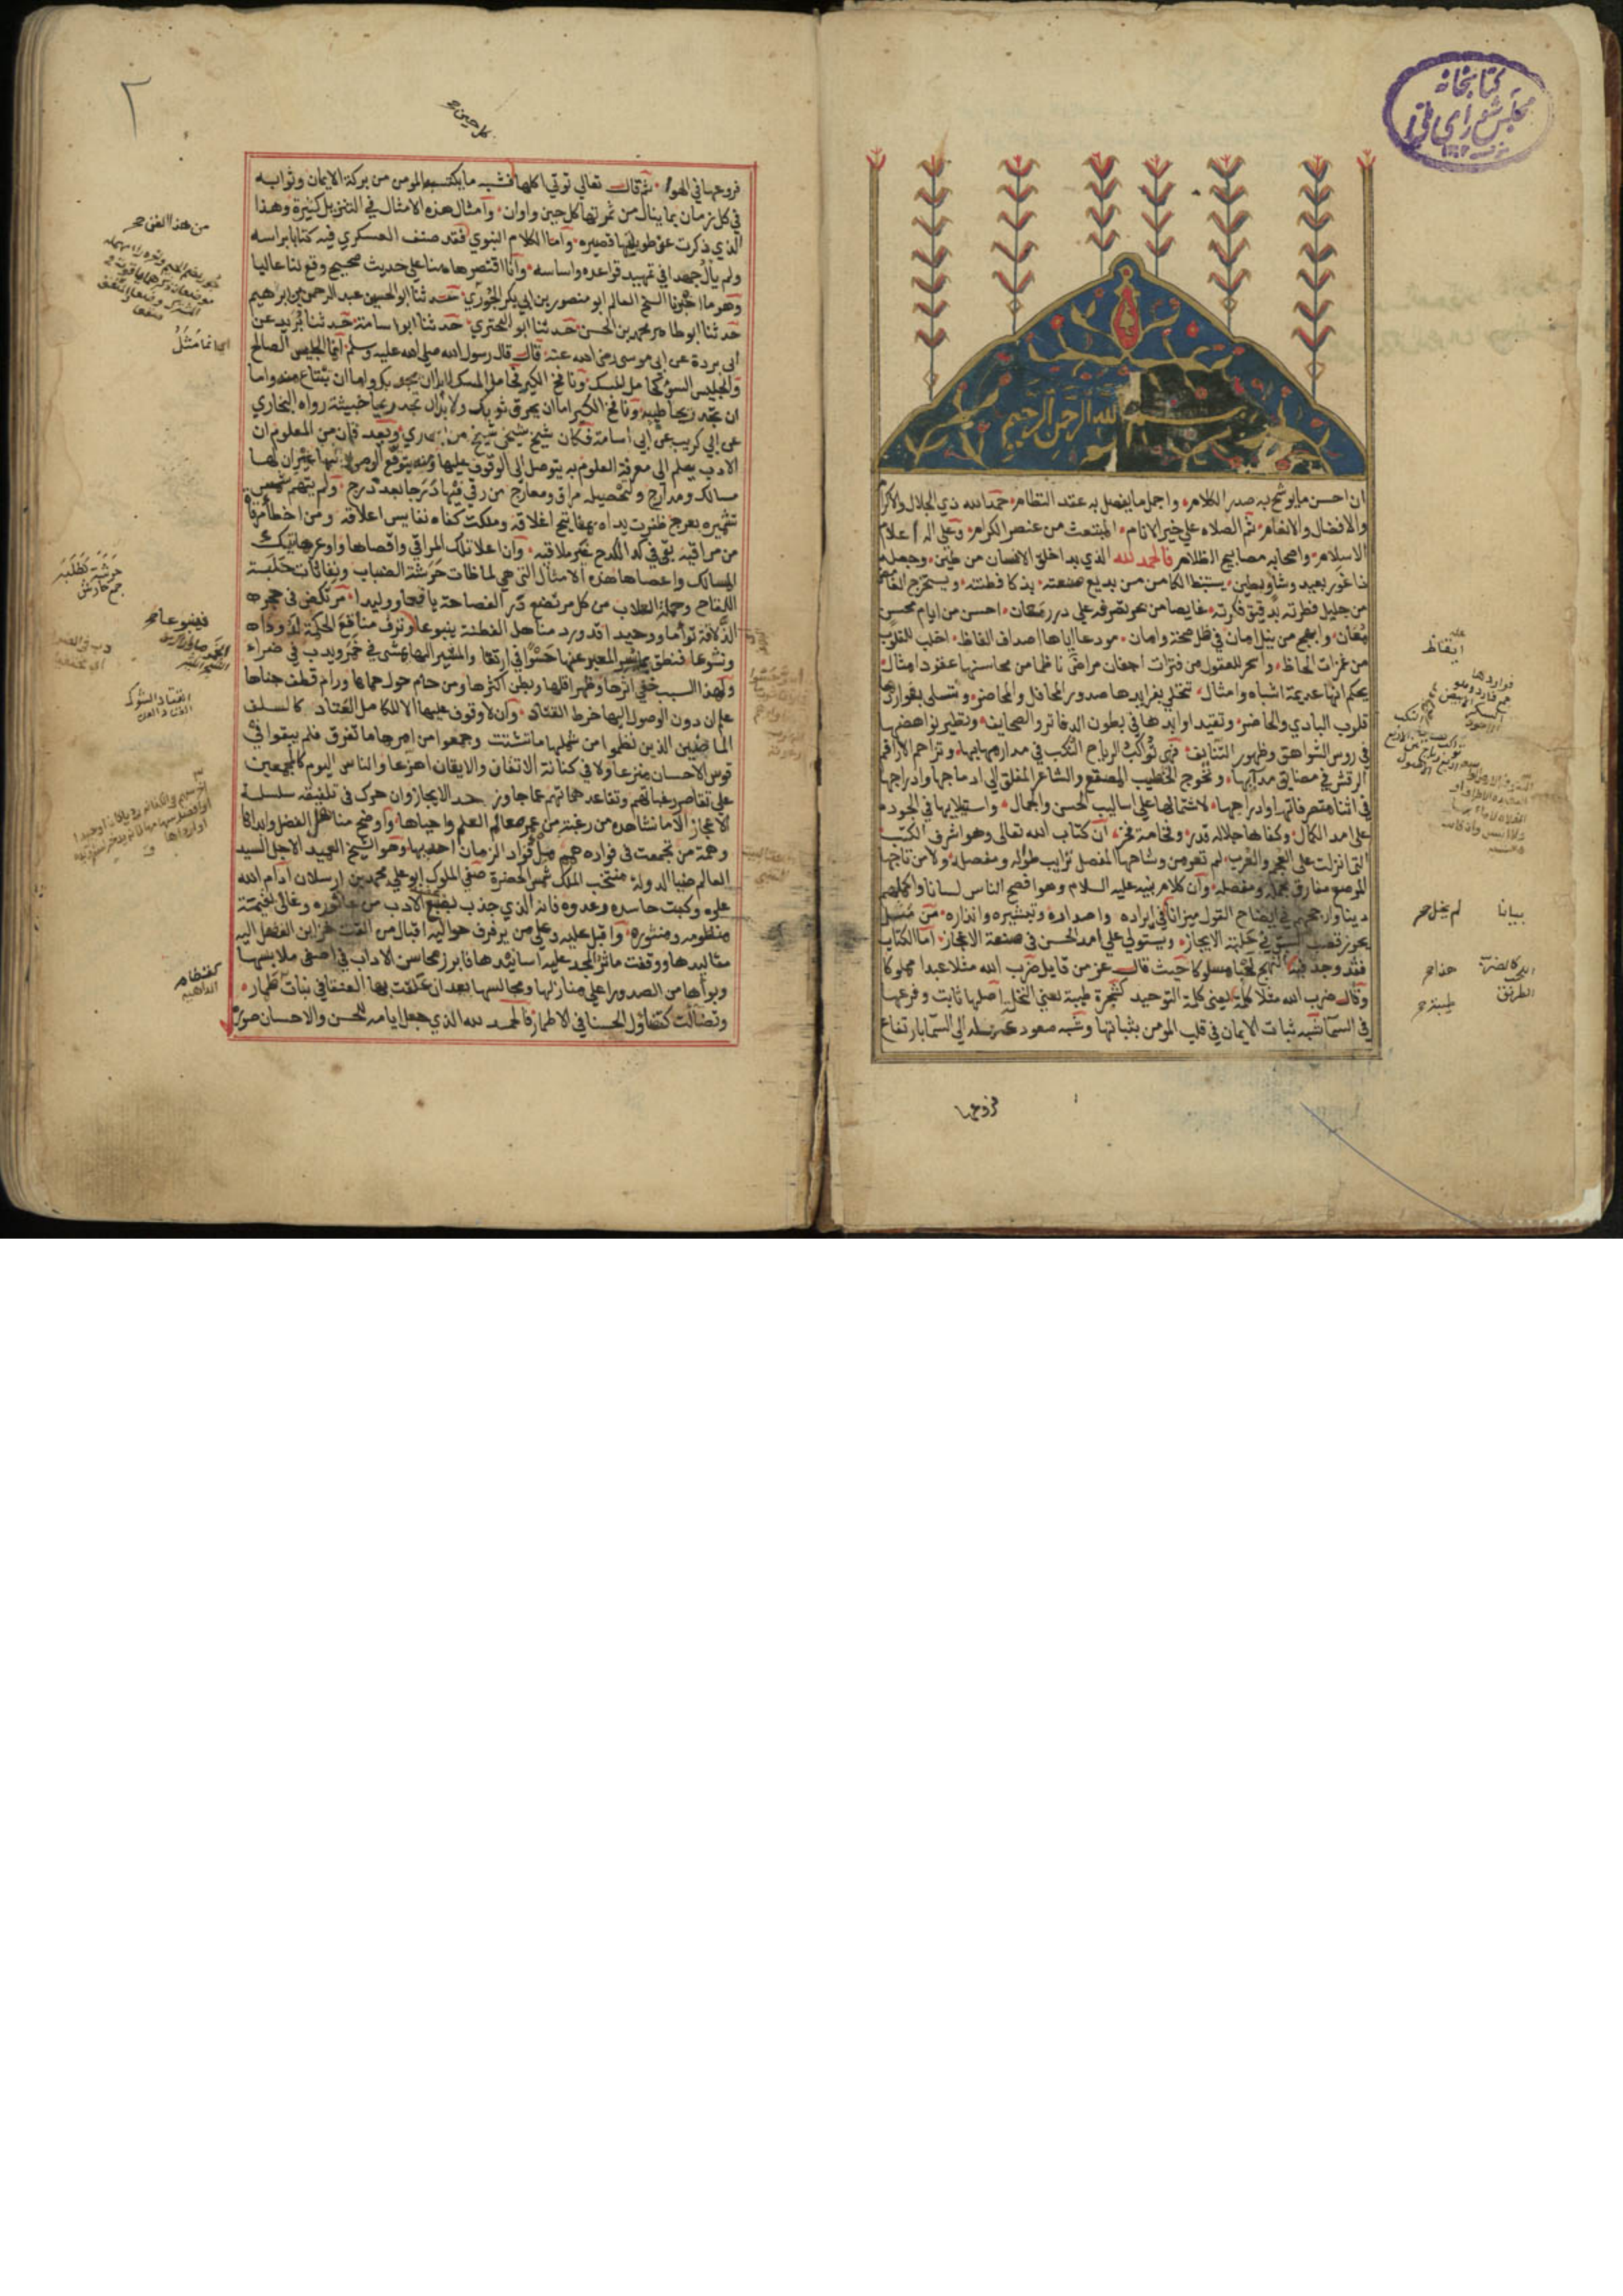 كتابخانه
مجلس شورای ملی
بسم الله الرحمن الرحيم
ان احسن ما يوشح به صدر الكلام واجمل ما يفصل به عقد النظام حمد الله ذي الجلال والاكرام
والافضال والانعام ثم الصلاة على خير الانام المبتعث من عنصر الكرام وعلى اله اعلام
الاسلام واصحابه مصابيح الظلام فالحمد لله الذي بدا خلق الانسان من طين وجعله
ذا غور بعيد وشأو بطين يستنبط الكامن من بديع صنعته بذكا فطنته ويستخرج الغامض
من جليل فطرته بدقيق فكرته غايصا من بحر تصرفه على درر معان احسن من ايام محسن
معان وابهج من نيل امان في ظل صحة وامان مودعا اياها اصداف الفاظ اخلب للقلوب
من غمزات الحاظ واسحر للعقول من فترات اجفان مراض ناظما من محاسنها عقود امثال
يحكم انها عديمة اشباه وامثال تتحلى بفرايدها صدور المحافل والمحاضر وتتسلى بفواردها
قلوب البادي والحاضر وتقيد اوابدها في بطون الدفاتر والصحايف وتطير نواهضها
في روس الشواهق وظهور التنايف فهي تواكب الرياح النكب في مدارجها ومهابها وتزاحم الاراقم
الرقش في مضايق مدابها وتحوج الخطيب المصقع والشاعر المفلق الى ادماجها وادراجها
في اثناء متصرفاتها وادراجها لاشتمالها على اساليب الحسن والجمال واستيلايها في الجودة
على امد الكمال وكفاها جلالة قدر وفخامة فخر ان كتاب الله تعالى وهو اشرف الكتب
التي انزلت على العجم والعرب لم تعر من وشاحها المفصل ترايب طواله ومفصله ولا من تاجها
المرصع مفارق مجمله ومفصله وان كلام نبيه عليه السلام وهو افصح الناس لسانا واكملهم
دينا وارجحهم في ايضاح القول ميزانا في ايراده واصداره وتبشيره وانذاره من مثل
يحوز قصب السبق في حلبة الايجاز ويستولي على امد الحسن في صنعة الاعجاز اما الكتاب
فقد وجد فيه النهج لحبا مسلوكا حيث قال عز من قايل ضرب الله مثلا عبدا مملوكا
وقال ضرب الله مثلا كلمة يعني كلمة التوحيد كشجرة طيبة يعني النخلة اصلها ثابت وفرعها
في السما شبه ثبات الايمان في قلب المومن بثباتها وشبه صعود عمله الى السما بارتفاع
فروعها
ايقاظ
بيانا
لم يخل
هذا
طيبة
٢
كل حين
فروعها في الهوا ثم قال تعالى توتي اكلها فشبه ما يكتسبه المومن من بركة الايمان وثوابه
في كل زمان بما ينال من ثمرتها كل حين واوان وامثال هذه الامثال في التنزيل كثيرة وهذا
الذي ذكرت عن طويلها قصيره واما الكلام النبوي فقد صنف العسكري فيه كتابا براسه
ولم يأل جهدا في تمهيد قواعده واساسه وانا اقتصر هاهنا على حديث صحيح وقع لنا عاليا
وهو ما اخبرنا الشيخ العالم ابو منصور بن ابي بكر الجوري حدثنا ابو الحسين عبد الرحمن بن ابرهيم
حدثنا ابو طاهر محمد بن الحسن حدثنا ابو البحتري حدثنا ابو اسامة حدثنا بريد عن
ابى بردة عن ابى موسى رضي الله عنه قال قال رسول الله صلى الله عليه وسلم انما الجليس الصالح
والجليس السؤ كحامل المسك ونافخ الكير فحامل المسك اما ان يحذيك واما ان تبتاع منه واما
ان تجد ريحا طيبة ونافخ الكير اما ان يحرق ثوبك ولا بد ان تجد ريحا خبيثة رواه البخاري
عن ابي كريب عن ابي اسامة فكان شيخ شيخي شيخ من البخاري وبعد فان من المعلوم ان
الادب سلم الى معرفة العلوم به يتوصل الى الوقوف عليها ومنه يتوقع الوصول اليها غير ان لها
مسالك ومدارج ولتحصيله مراقي ومعارج من رقي فيها درجا بعد درج ولم يتهم شمس
تشميره بعرج ظفرت يداه بمفاتيح اغلاقه وملكت كفاه نفايس اعلاقه ومن اخطأ مرقاة
من مراقيه بقي في كد الكدح غير ملاقيه وان اعلا تلك المراقي واقصاها واوعر هاتيك
المسالك واعصاها هذه الامثال التي هي لماظات حرشة الضباب ونفاثات حلبة
اللقاح وحملة العلاب من كل مرتضع در الفصاحة يافعا ووليدا مرتكض في حجره
الذلاقة توأما ووحيدا قد ورد مناهل الفطنة ينبوعا ونزف مناقع الحكمة لدودا
ونشوعا فنطق بما يسر المعبر عنها حشوا في ارتغا والمشير اليها يمشي في خمر ويدب في ضراء
ولهذا السبب خفي اثرها وظهر اقلها وبطن اكثرها ومن حام حول حماها ورام قطف جناها
علم ان دون الوصول اليها خرط القتاد وان لا وقوف عليها الا للكامل العتاد كالسلف
الماضيين الذين نظموا من شملها ما تشتت وجمعوا من امرها ما تفرق فلم يبقوا في
قوس الاحسان منزعا ولا في كنانة الاتقان والايقان اهزعا والناس اليوم كالمجمعين
على تقاصر رغباتهم وتقاعد هماتهم عما جاوز حد الايجاز وان حرك في تلفيقه سلسلة
الاعجاز الا ما نشاهده من رغبة من عمر معالم العلم واحياها واوضح مناهل الفضل وابداها
وهمة من تجمعت في فواده همم ملء فواد الزمان احديها وهو الشيخ العميد الاجل السيد
العالم ضيا الدولة منتخب الملك شمس الحضرة صفي الملوك ابو علي محمد بن ارسلان ادام الله
علوه وكبت حاسده وعدوه فانه الذي جذب بضبع الادب من عاثوره وغالى بقيمة
منظومه ومنثوره واقبل عليه وعلى من يرفرف حواليه اقبال من القت خزاين الفضل اليه
مقاليدها ووقفت ماثر المجد عليه اسانيدها فابرز محاسن الاداب في اضفى ملابسها
وبوأها من الصدور اعلى منازلها ومجالسها بعد ان حلقت بها العنقا في بنات طمار
وتضالت كتضاؤل الحسنا في الاطمار فالحمد لله الذي جعل ايامه للحسن والاحسان صورة
من هذا الفن
القتاد الشوك